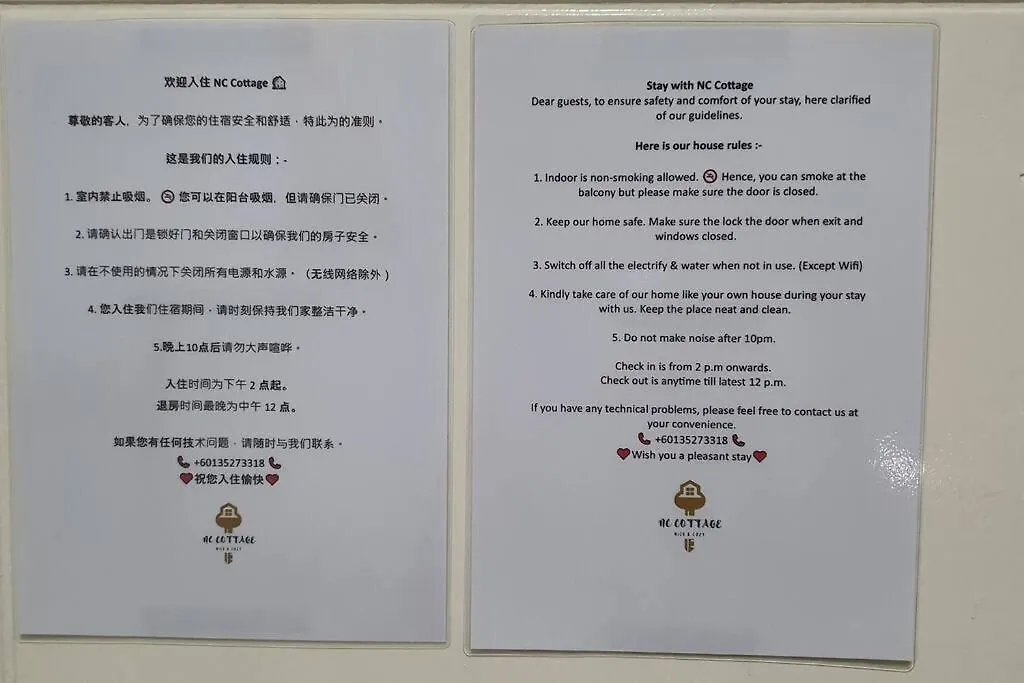 欢迎入住 NC Cottage
尊敬的客人，为了确保您的住宿安全和舒适，特此为的准则。
这是我们的入住规则：-
1. 室内禁止吸烟。 您可以在阳台吸烟，但请确保门已关闭。
2. 请确认出门是锁好门和关闭窗口以确保我们的房子安全。
3. 请在不使用的情况下关闭所有电源和水源。（无线网络除外）
4. 您入住我们住宿期间，请时刻保持我们家整洁干净。
5.晚上10点后请勿大声喧哗。
入住时间为下午 2 点起。
退房时间最晚为中午 12 点。
如果您有任何技术问题，请随时与我们联系。
+60135273318
祝您入住愉快
NC COTTAGE
NICE & COZY
Stay with NC Cottage
Dear guests, to ensure safety and comfort of your stay, here clarified
of our guidelines.
Here is our house rules :-
1. Indoor is non-smoking allowed. Hence, you can smoke at the
balcony but please make sure the door is closed.
2. Keep our home safe. Make sure the lock the door when exit and
windows closed.
3. Switch off all the electrify & water when not in use. (Except Wifi)
4. Kindly take care of our home like your own house during your stay
with us. Keep the place neat and clean.
5. Do not make noise after 10pm.
Check in is from 2 p.m onwards.
Check out is anytime till latest 12 p.m.
If you have any technical problems, please feel free to contact us at
your convenience.
+60135273318
Wish you a pleasant stay
NC COTTAGE
NICE & COZY